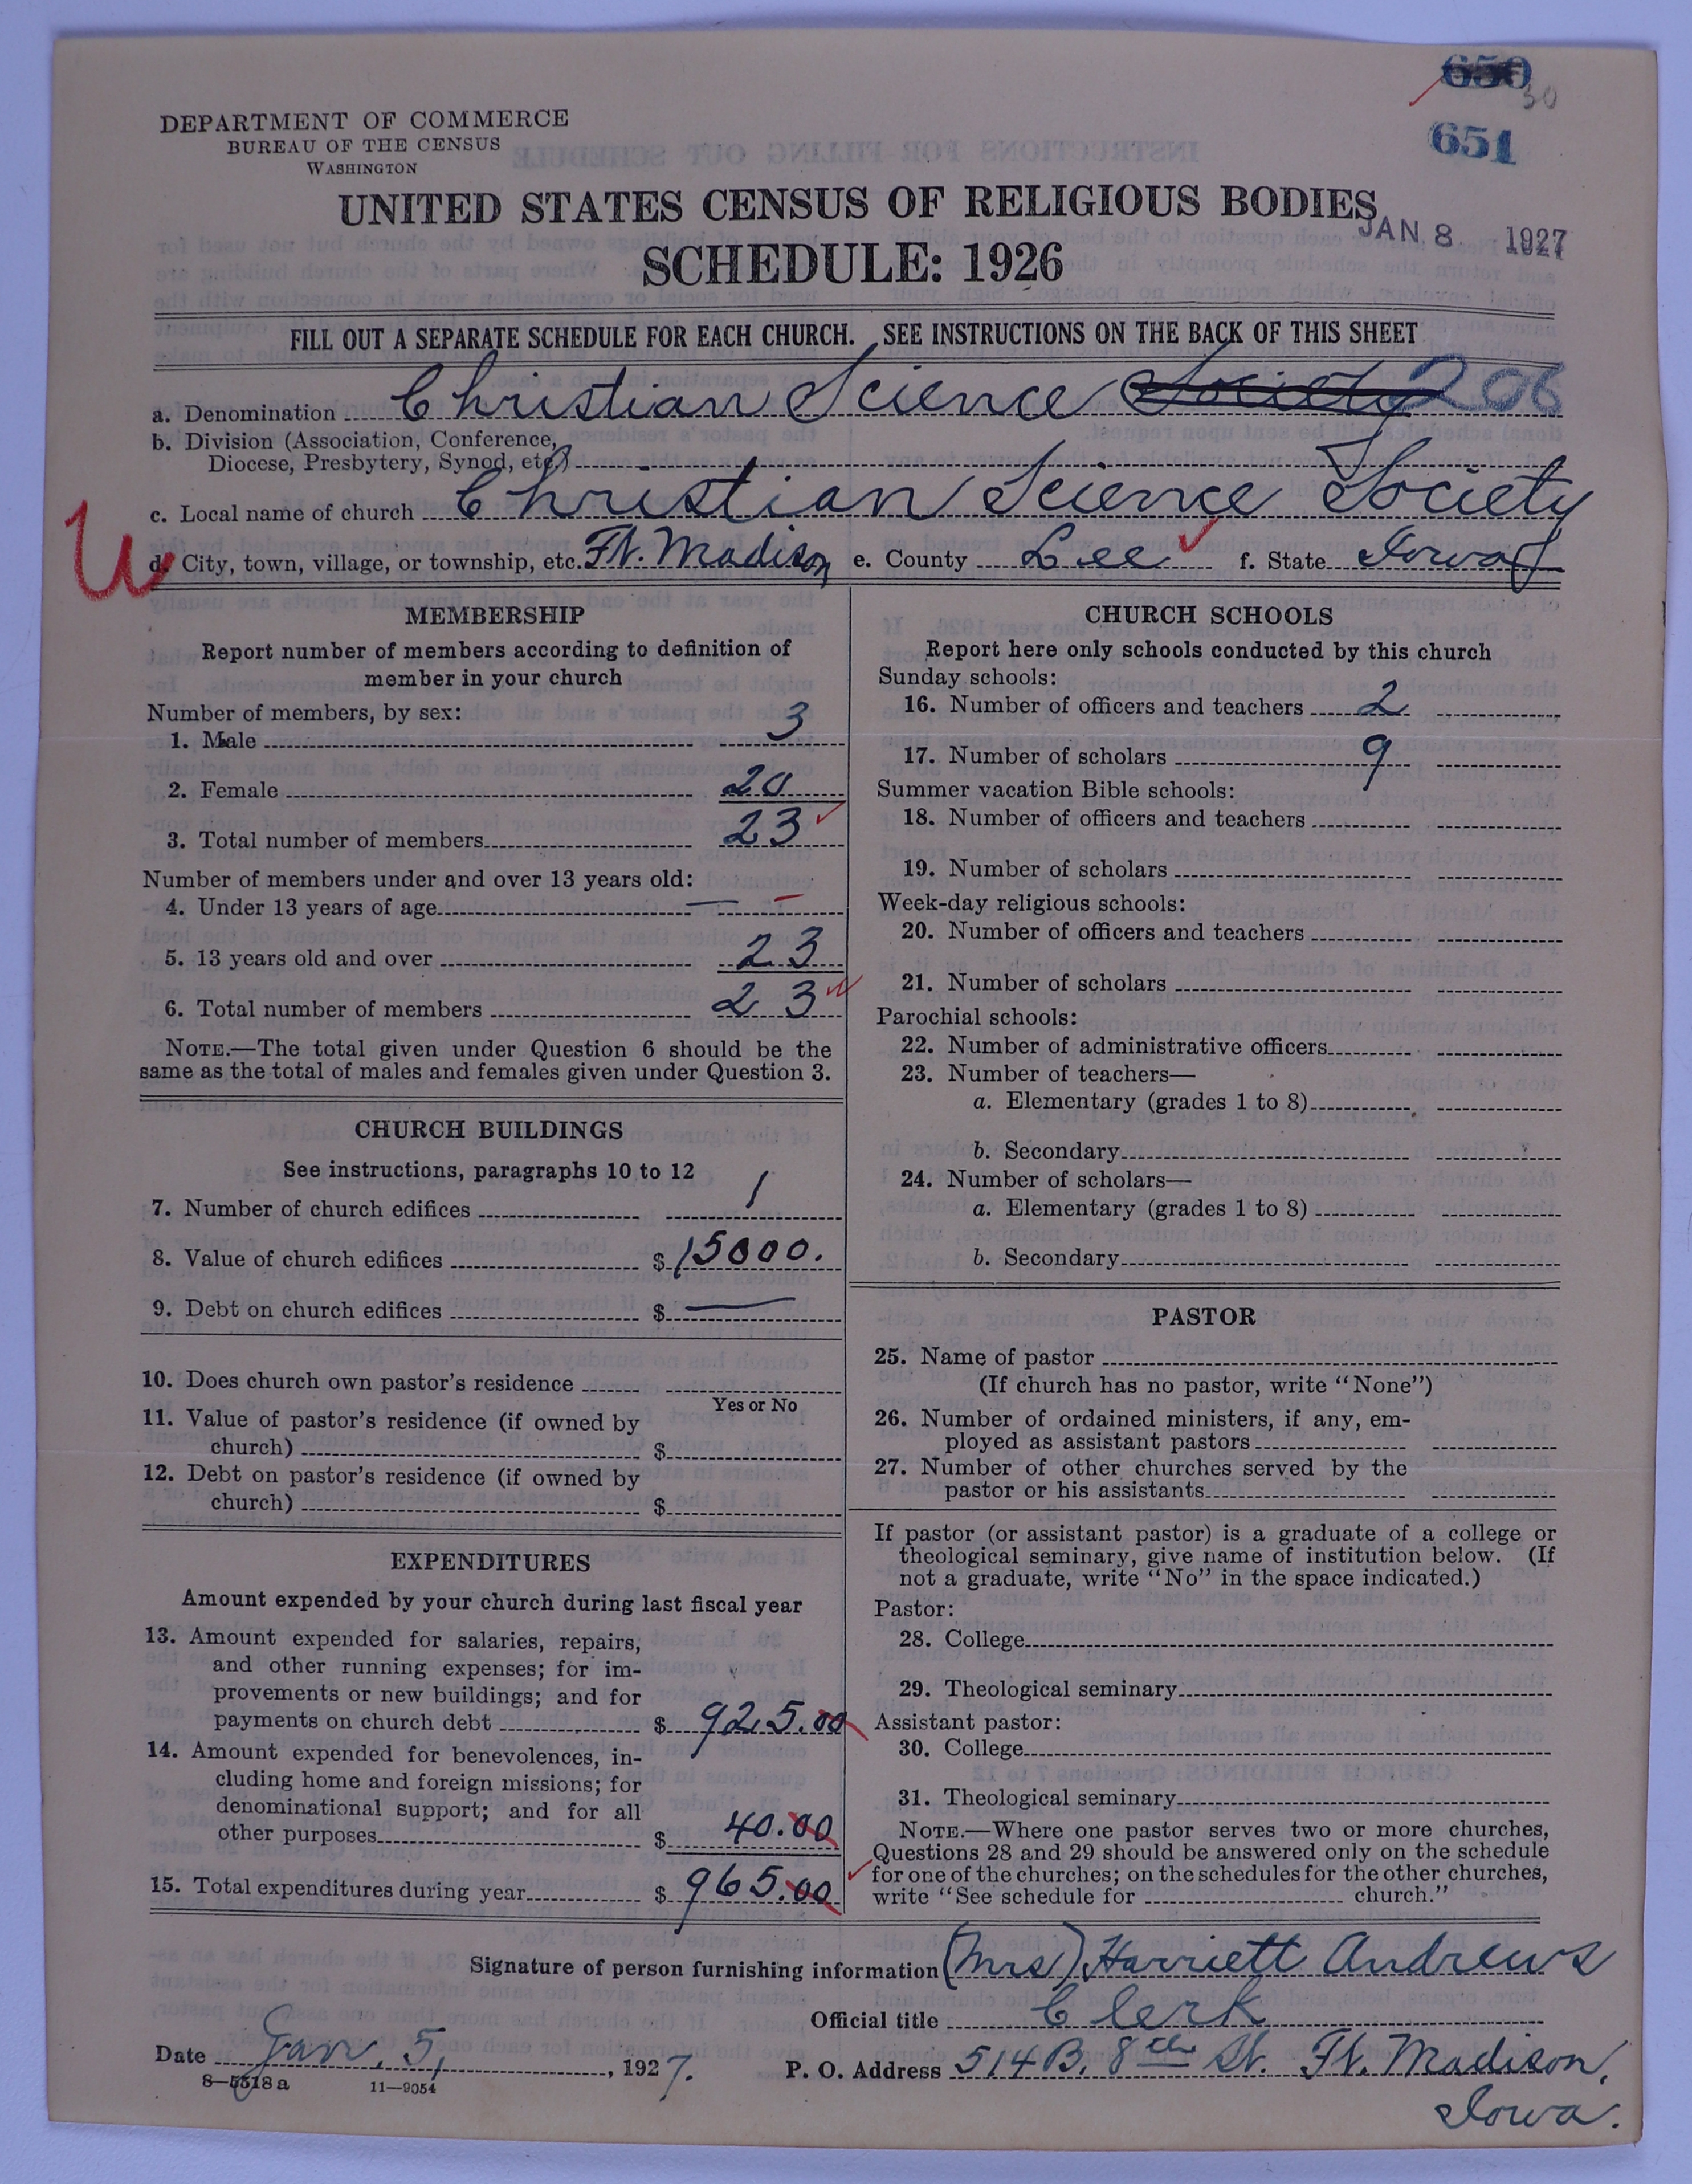 650
30
651
DEPARTMENT OF COMMERCE
BUREAU OF THE CENSUS
WASHINGTON
UNITED STATES CENSUS OF RELIGIOUS BODIES
SCHEDULE: 1926
JAN 8 1927
FILL OUT A SEPARATE SCHEDULE FOR EACH CHURCH. SEE INSTRUCTIONS ON THE BACK OF THIS SHEET
a. Denomination Christian Science Society 206
b. Division (Association, Conference,
Diocese, Presbytery, Synod, etc.)
c. Local name of church Christian Science Society
W
d. City, town, village, or township, etc. Ft. Madison e. County Lee f. State Iowa
MEMBERSHIP
Report number of members according to definition of
member in your church
Number of members, by sex:
1. Male 3
2. Female 20
3. Total number of members 23
Number of members under and over 13 years old:
4. Under 13 years of age —
5. 13 years old and over 23
6. Total number of members 23
NOTE.—The total given under Question 6 should be the
same as the total of males and females given under Question 3.
CHURCH BUILDINGS
See instructions, paragraphs 10 to 12
7. Number of church edifices 1
8. Value of church edifices $ 15000.
9. Debt on church edifices $ —
10. Does church own pastor's residence
Yes or No
11. Value of pastor's residence (if owned by
church) $
12. Debt on pastor's residence (if owned by
church) $
EXPENDITURES
Amount expended by your church during last fiscal year
13. Amount expended for salaries, repairs,
and other running expenses; for im-
provements or new buildings; and for
payments on church debt $ 925.00
14. Amount expended for benevolences, in-
cluding home and foreign missions; for
denominational support; and for all
other purposes $ 40.00
15. Total expenditures during year $ 965.00
CHURCH SCHOOLS
Report here only schools conducted by this church
Sunday schools:
16. Number of officers and teachers 2
17. Number of scholars 9
Summer vacation Bible schools:
18. Number of officers and teachers
19. Number of scholars
Week-day religious schools:
20. Number of officers and teachers
21. Number of scholars
Parochial schools:
22. Number of administrative officers
23. Number of teachers—
a. Elementary (grades 1 to 8)
b. Secondary
24. Number of scholars—
a. Elementary (grades 1 to 8)
b. Secondary
PASTOR
25. Name of pastor
(If church has no pastor, write "None")
26. Number of ordained ministers, if any, em-
ployed as assistant pastors
27. Number of other churches served by the
pastor or his assistants
If pastor (or assistant pastor) is a graduate of a college or
theological seminary, give name of institution below. (If
not a graduate, write "No" in the space indicated.)
Pastor:
28. College
29. Theological seminary
Assistant pastor:
30. College
31. Theological seminary
NOTE.—Where one pastor serves two or more churches,
Questions 28 and 29 should be answered only on the schedule
for one of the churches; on the schedules for the other churches,
write "See schedule for church."
Signature of person furnishing information (Mrs) Harriett Andrews
Official title Clerk
Date Jan. 5, 1927. P. O. Address 514 B. 8th St. Ft. Madison,
Iowa.
8—5518a 11—9054